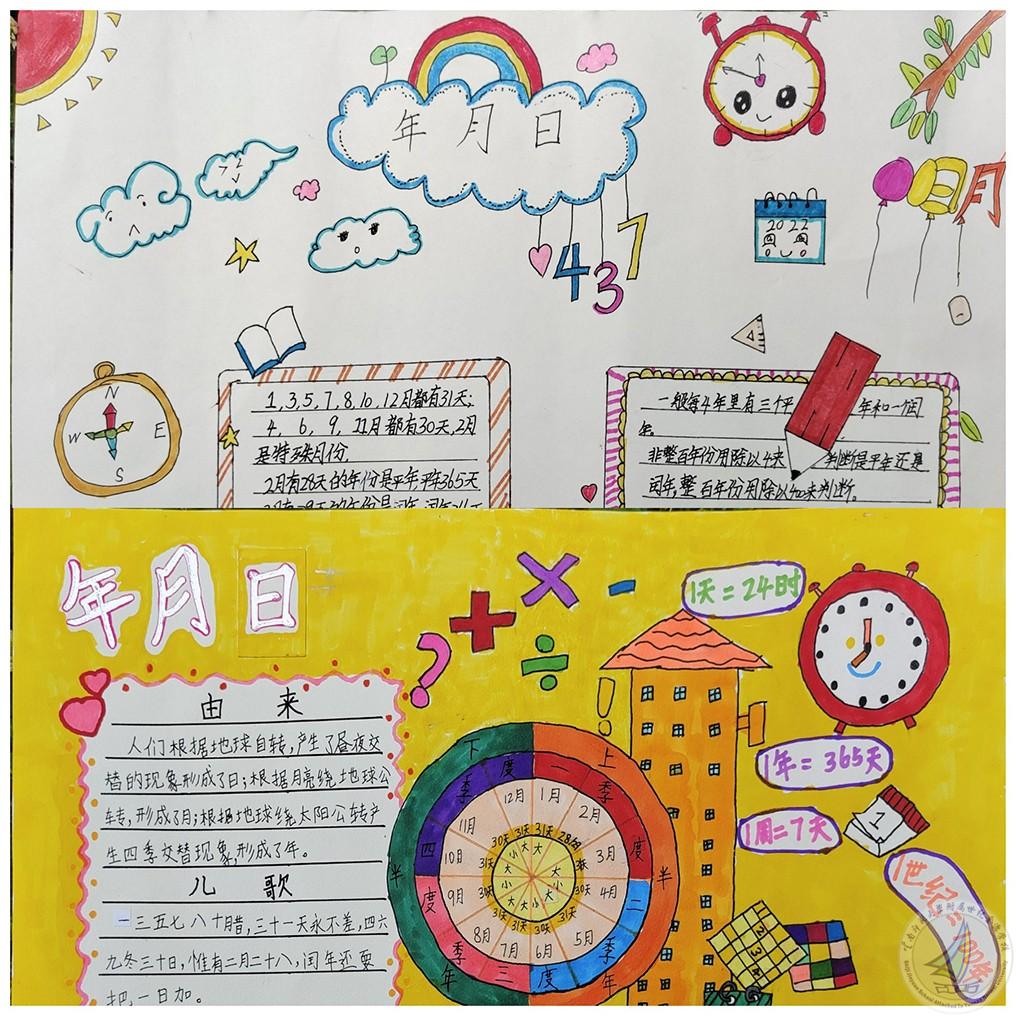 年月日
4
3
7
2022
日
月
N
W
E
S
1,3,5,7,8,10,12月都有31天;
4, 6, 9, 11月都有30天,2月
是特殊月份.
2月有28天的年份是平年,平年365天
一般每4年里有三个平
年和一个闰
年.
非整百年份用除以4来
判断是平年还是
闰年,整百年份用除以400来判断.
年月日
? + × ÷ - !
1天=24时
1年=365天
1周=7天
1
1世纪
由 来
人们根据地球自转,产生了昼夜交
替的现象形成了日;根据月亮绕地球公
转,形成了月;根据地球绕太阳公转产
生四季交替现象,形成了年。
儿 歌
一三五七八十月腊,三十一天永不差,四六
九冬三十日,惟有二月二十八,闰年还要
把一日加。
上半年
下半年
一季度
二季度
三季度
四季度
1月
2月
3月
4月
5月
6月
7月
8月
9月
10月
11月
12月